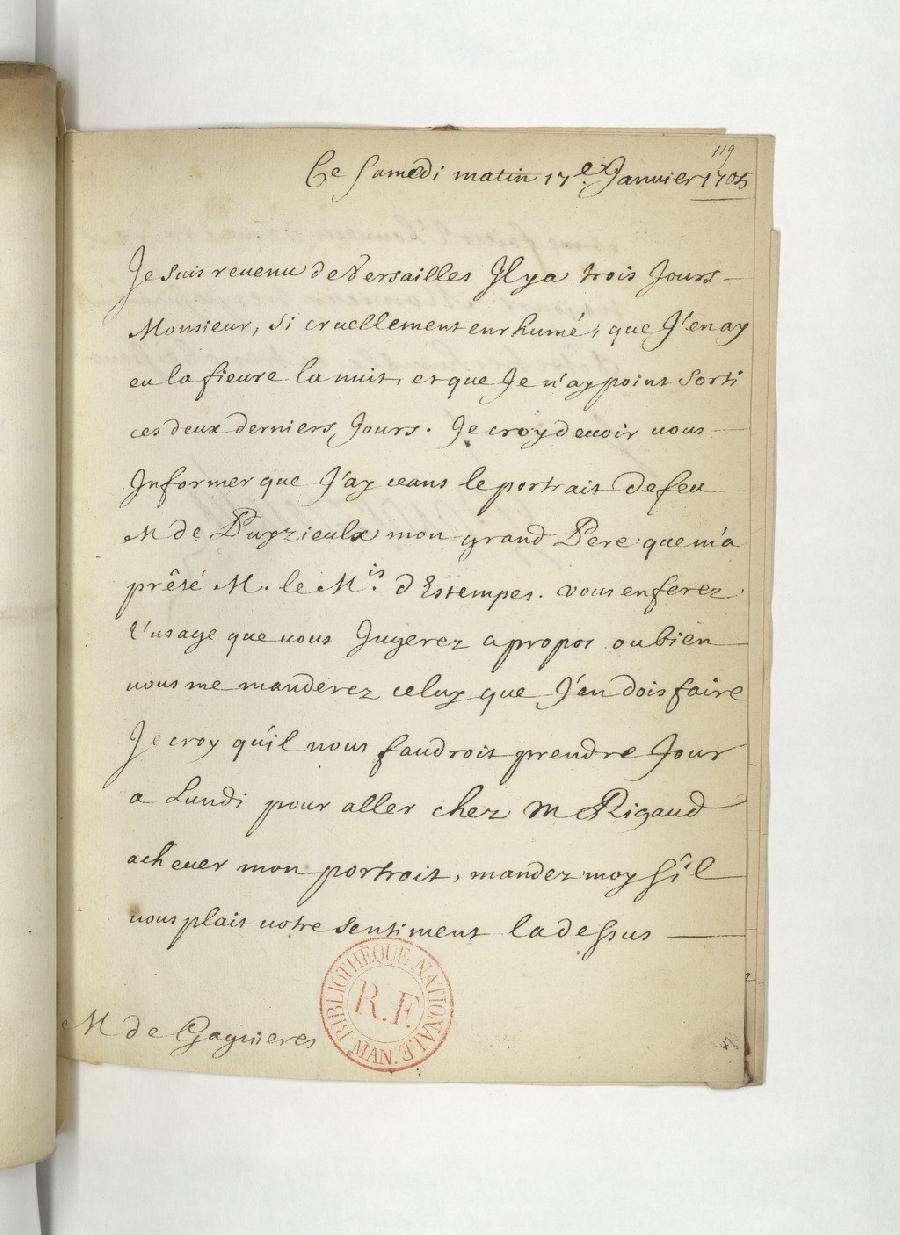 119
Ce Samedi matin 17e Janvier 1705
Je suis reuenu de Versailles Il y a trois Jours
Monsieur, si cruellement enrhumé, que J'en ay
eu la fieure la nuit, et que Je n'ay point sorti
ces deux derniers Jours. Je croy deuoir uous
Informer que J'ay ceans le portrait de feu
M de Puyzieulx mon grand Pere que m'a
prêté M. le Mis. d'Estempes. vous en ferez
l'usage que uous Jugerez a propos ou bien
uous me manderez celuy que J'en dois faire
Je croy qu'il nous faudroit prendre Jour
a Lundi pour aller chez M Rigaud
acheuer mon portrait, mandez moy s'il
uous plait uotre sentiment la dessus
M de Gagnieres
BIBLIOTHEQUE NATIONALE
R.F.
MAN.